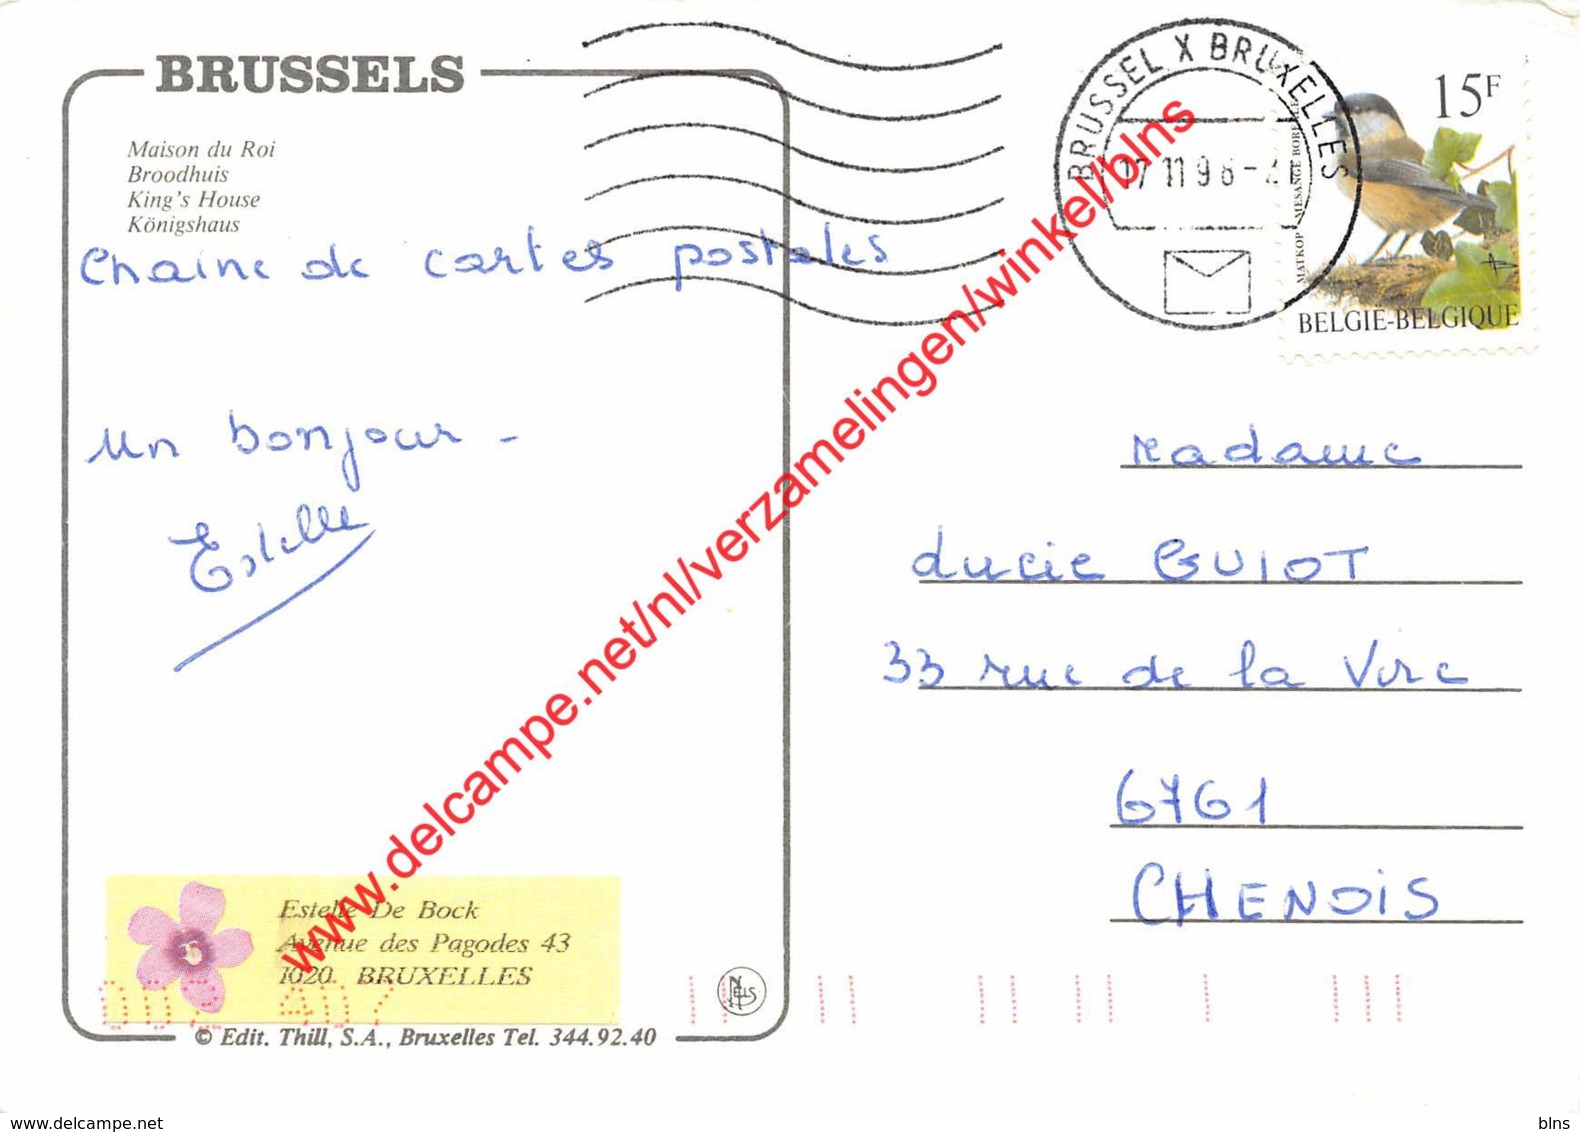 BRUSSELS
Maison du Roi
Broodhuis
King's House
Königshaus
Chaine de cartes postales
Un bonjour -
Estelle
BRUSSEL X BRUXELLES
17 11 98
15F
MATKOP MESANGE BOREALE
BELGIË-BELGIQUE
Madame
Lucie GUIOT
33 rue de la Vire
6761
CHENOIS
Estelle De Bock
Avenue des Pagodes 43
1020 BRUXELLES
NELS
© Edit. Thill, S.A., Bruxelles Tel. 344.92.40
www.delcampe.net/nl/verzamelingen/winkel/blns
www.delcampe.net
blns